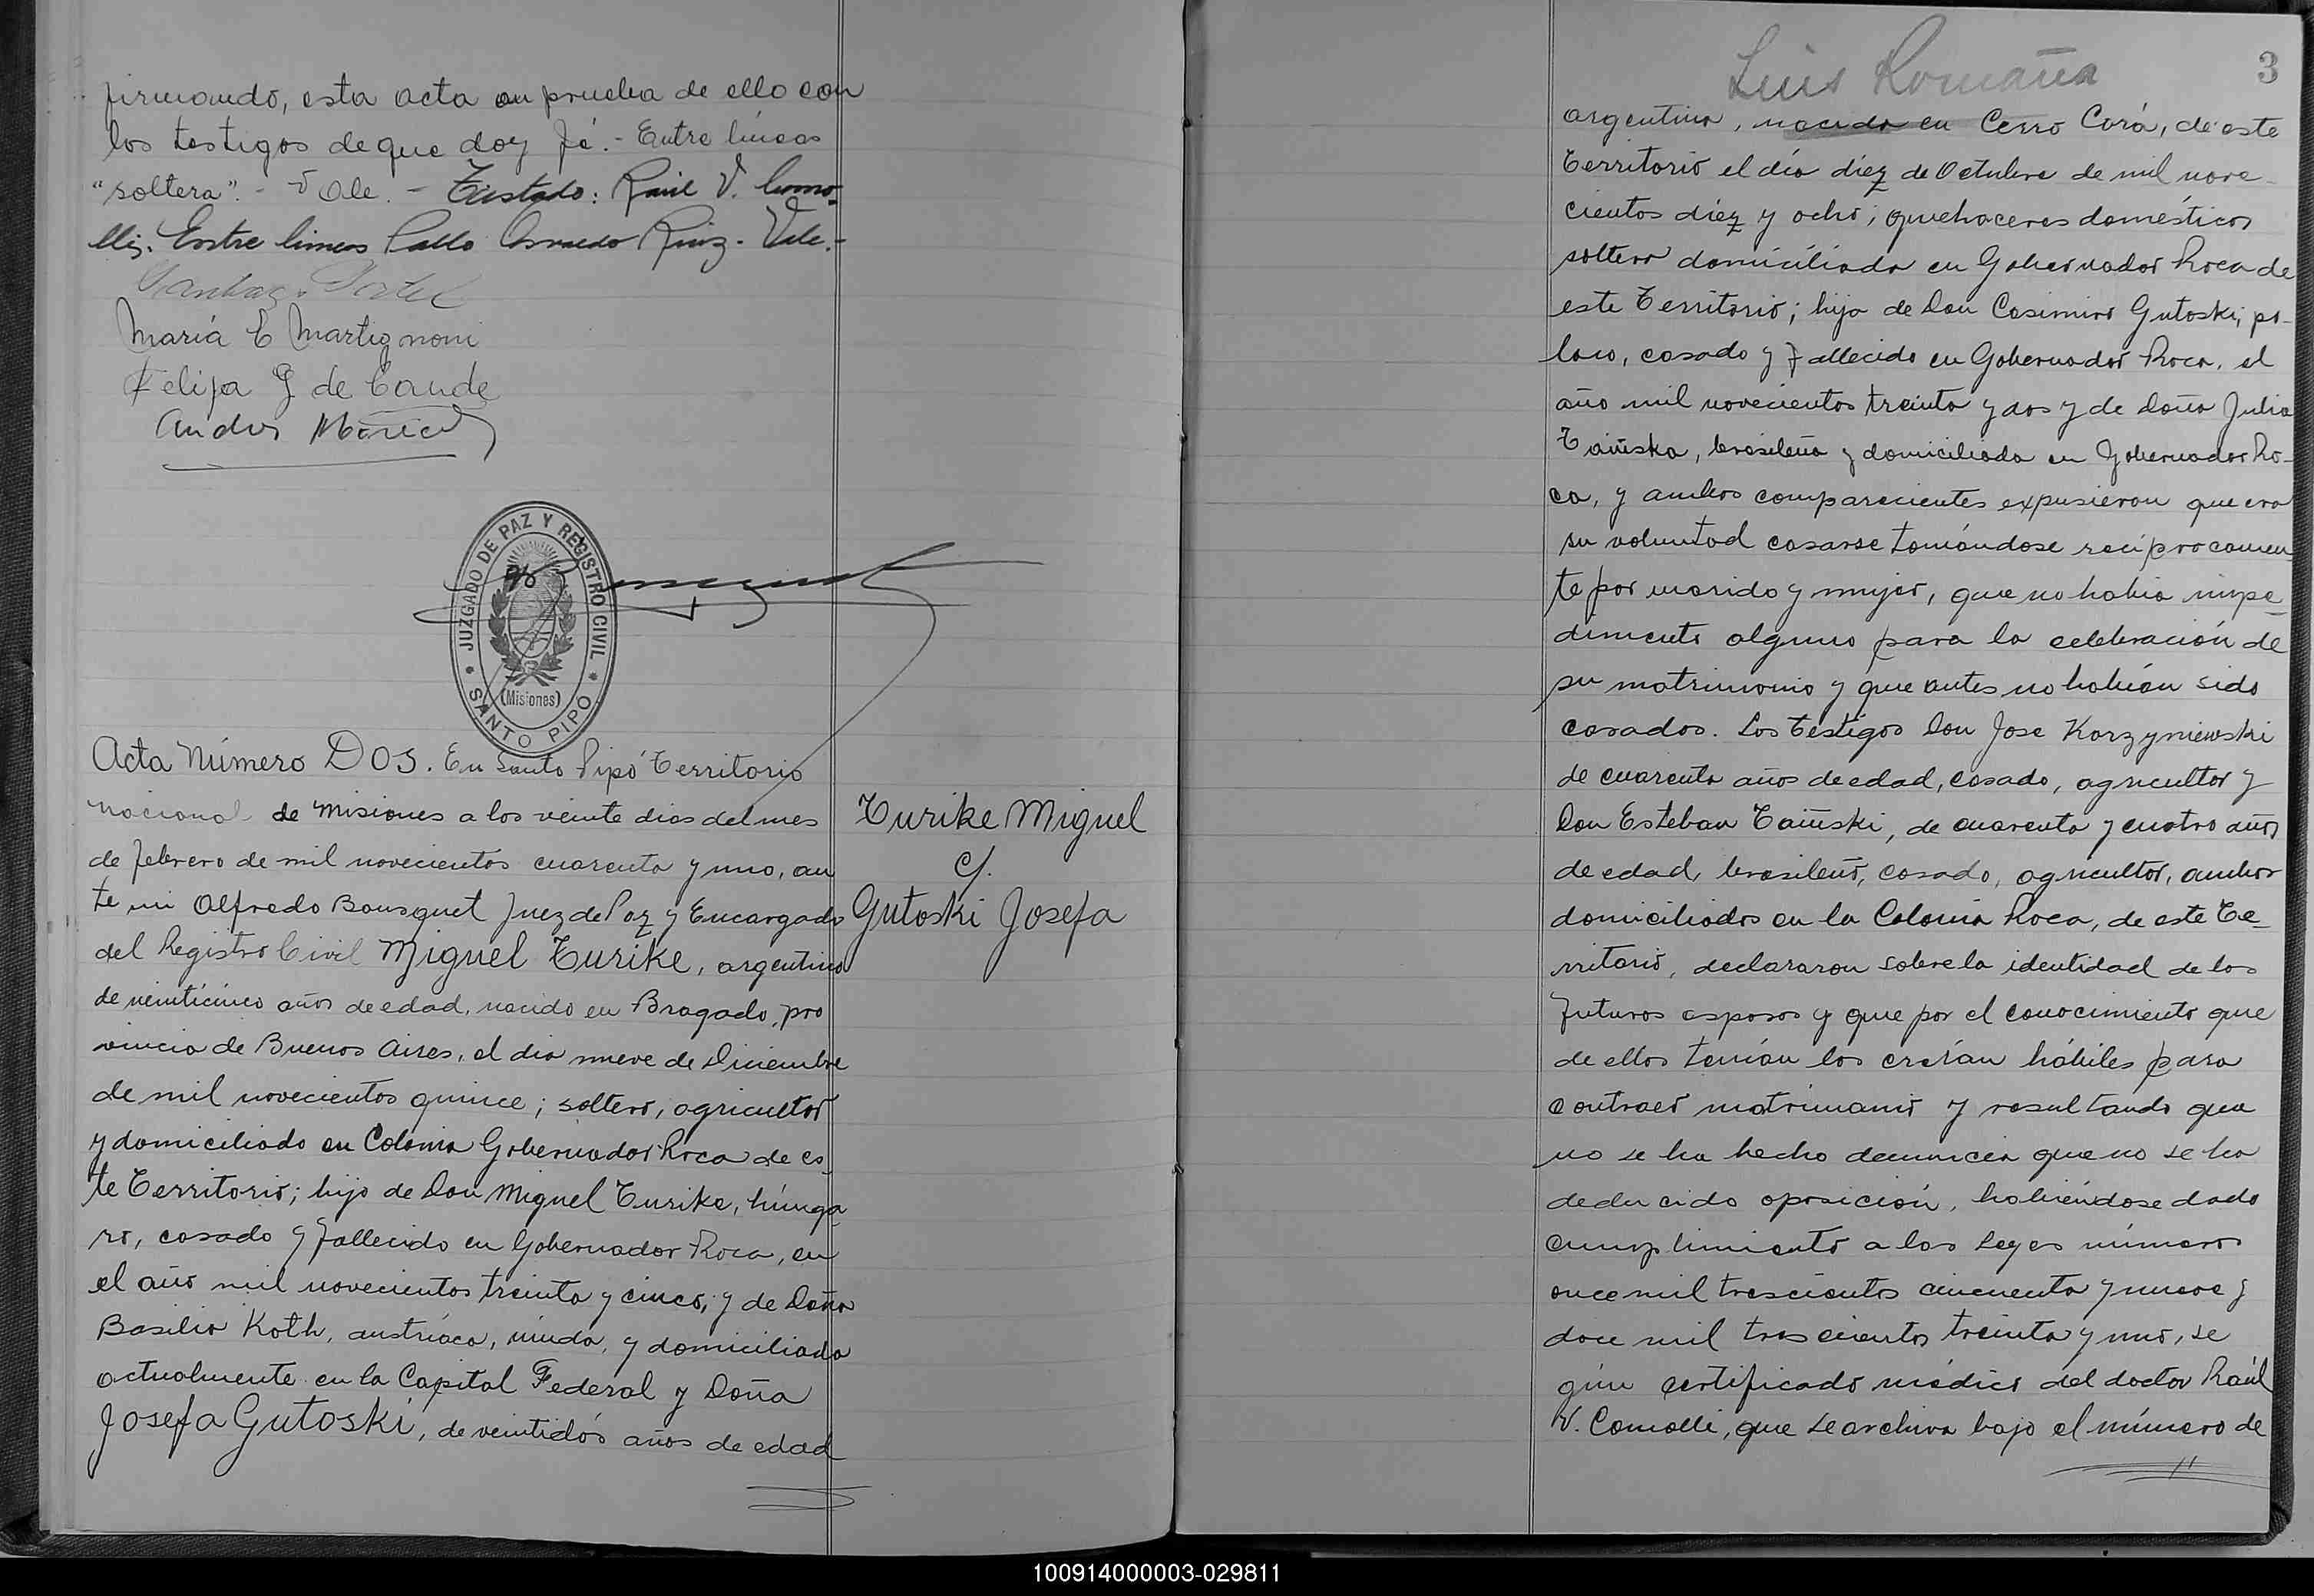 firmando, esta acta en prueba de ello con
los testigos de que doy fé.- Entre líneas
"soltera".- Vale. - Testado: Raúl V. Como-
lli. Entre lineas Pablo Osvaldo Ruiz. Vale.-
María E Martignoni
Felipa G de Caude
Andres
JUZGADO DE PAZ Y REGISTRO CIVIL
(Misiones)
SANTO PIPO
Acta Número DOS. En Santo Pipó Territorio
Nacional de Misiones a los veinte dias del mes
de febrero de mil novecientos cuarenta y uno, an
te mi Alfredo Bousquet Juez de Paz y Encargado
del Registro Civil Miguel Turike, argentino
de veinticinco años de edad, nacido en Bragado, pro
vincia de Buenos Aires, el dia nueve de Diciembre
de mil novecientos quince; soltero, agricultor
y domiciliado en Colonia Gobernador Roca de es-
te Territorio; hijo de Don Miguel Turike, húnga-
ro, casado y fallecido en Gobernador Roca, en
el año mil novecientos treinta y cinco; y de Doña
Basilia Koth, austríaca, viuda, y domiciliada
actualmente en la Capital Federal y Doña
Josefa Gutoski, de veintidós años de edad
Turike Miguel
c/.
Gutoski Josefa
Luis Romaña
3
argentina, nacida en Cerro Corá, de este
Territorio el día diez de Octubre de mil nove-
cientos diez y ocho; quehaceres domésticos
soltera domiciliada en Gobernador Roca de
este Territorio; hija de Don Casimiro Gutoski, po-
laco, casado y fallecido en Gobernador Roca, el
año mil novecientos treinta y dos y de Doña Julia
Taiñska, brasileña y domiciliada en Gobernador Ro-
ca, y ambos comparecientes expusieron que era
su voluntad casarse tomándose recíprocamen
te por marido y mujer, que no había impe-
dimento alguno para la celebración de
su matrimonio y que antes no habían sido
casados. Los testigos Don Jose Korzyniewski
de cuarenta años de edad, casado, agricultor y
Don Esteban Taiñski, de cuarenta y cuatro años
de edad, brasileño, casado, agricultor, ambos
domiciliados en la Colonia Roca, de este Te-
rritorio, declararon sobre la identidad de los
futuros esposos y que por el conocimiento que
de ellos tenían los creían hábiles para
contraer matrimonio y resultando que
no se ha hecho denuncia que no se ha
deducido oposición, habiéndose dado
cumplimiento a las Leyes número
once mil trescientos cincuenta y nueve y
doce mil trescientos treinta y uno, se
gún certificado médico del doctor Raúl
V. Comolli, que se archiva bajo el número de
100914000003-029811